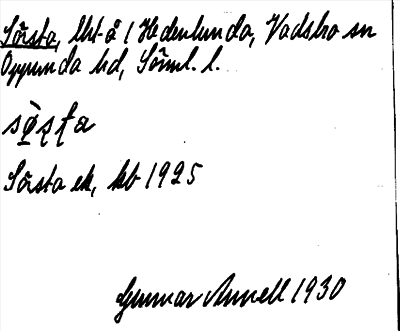 Sörsta, lht å 1 Hedenlunda, Vadsbro sn
Oppunda hd, Sörml. l.
Sörsta ek, kb 1925
Gunnar Annell 1930